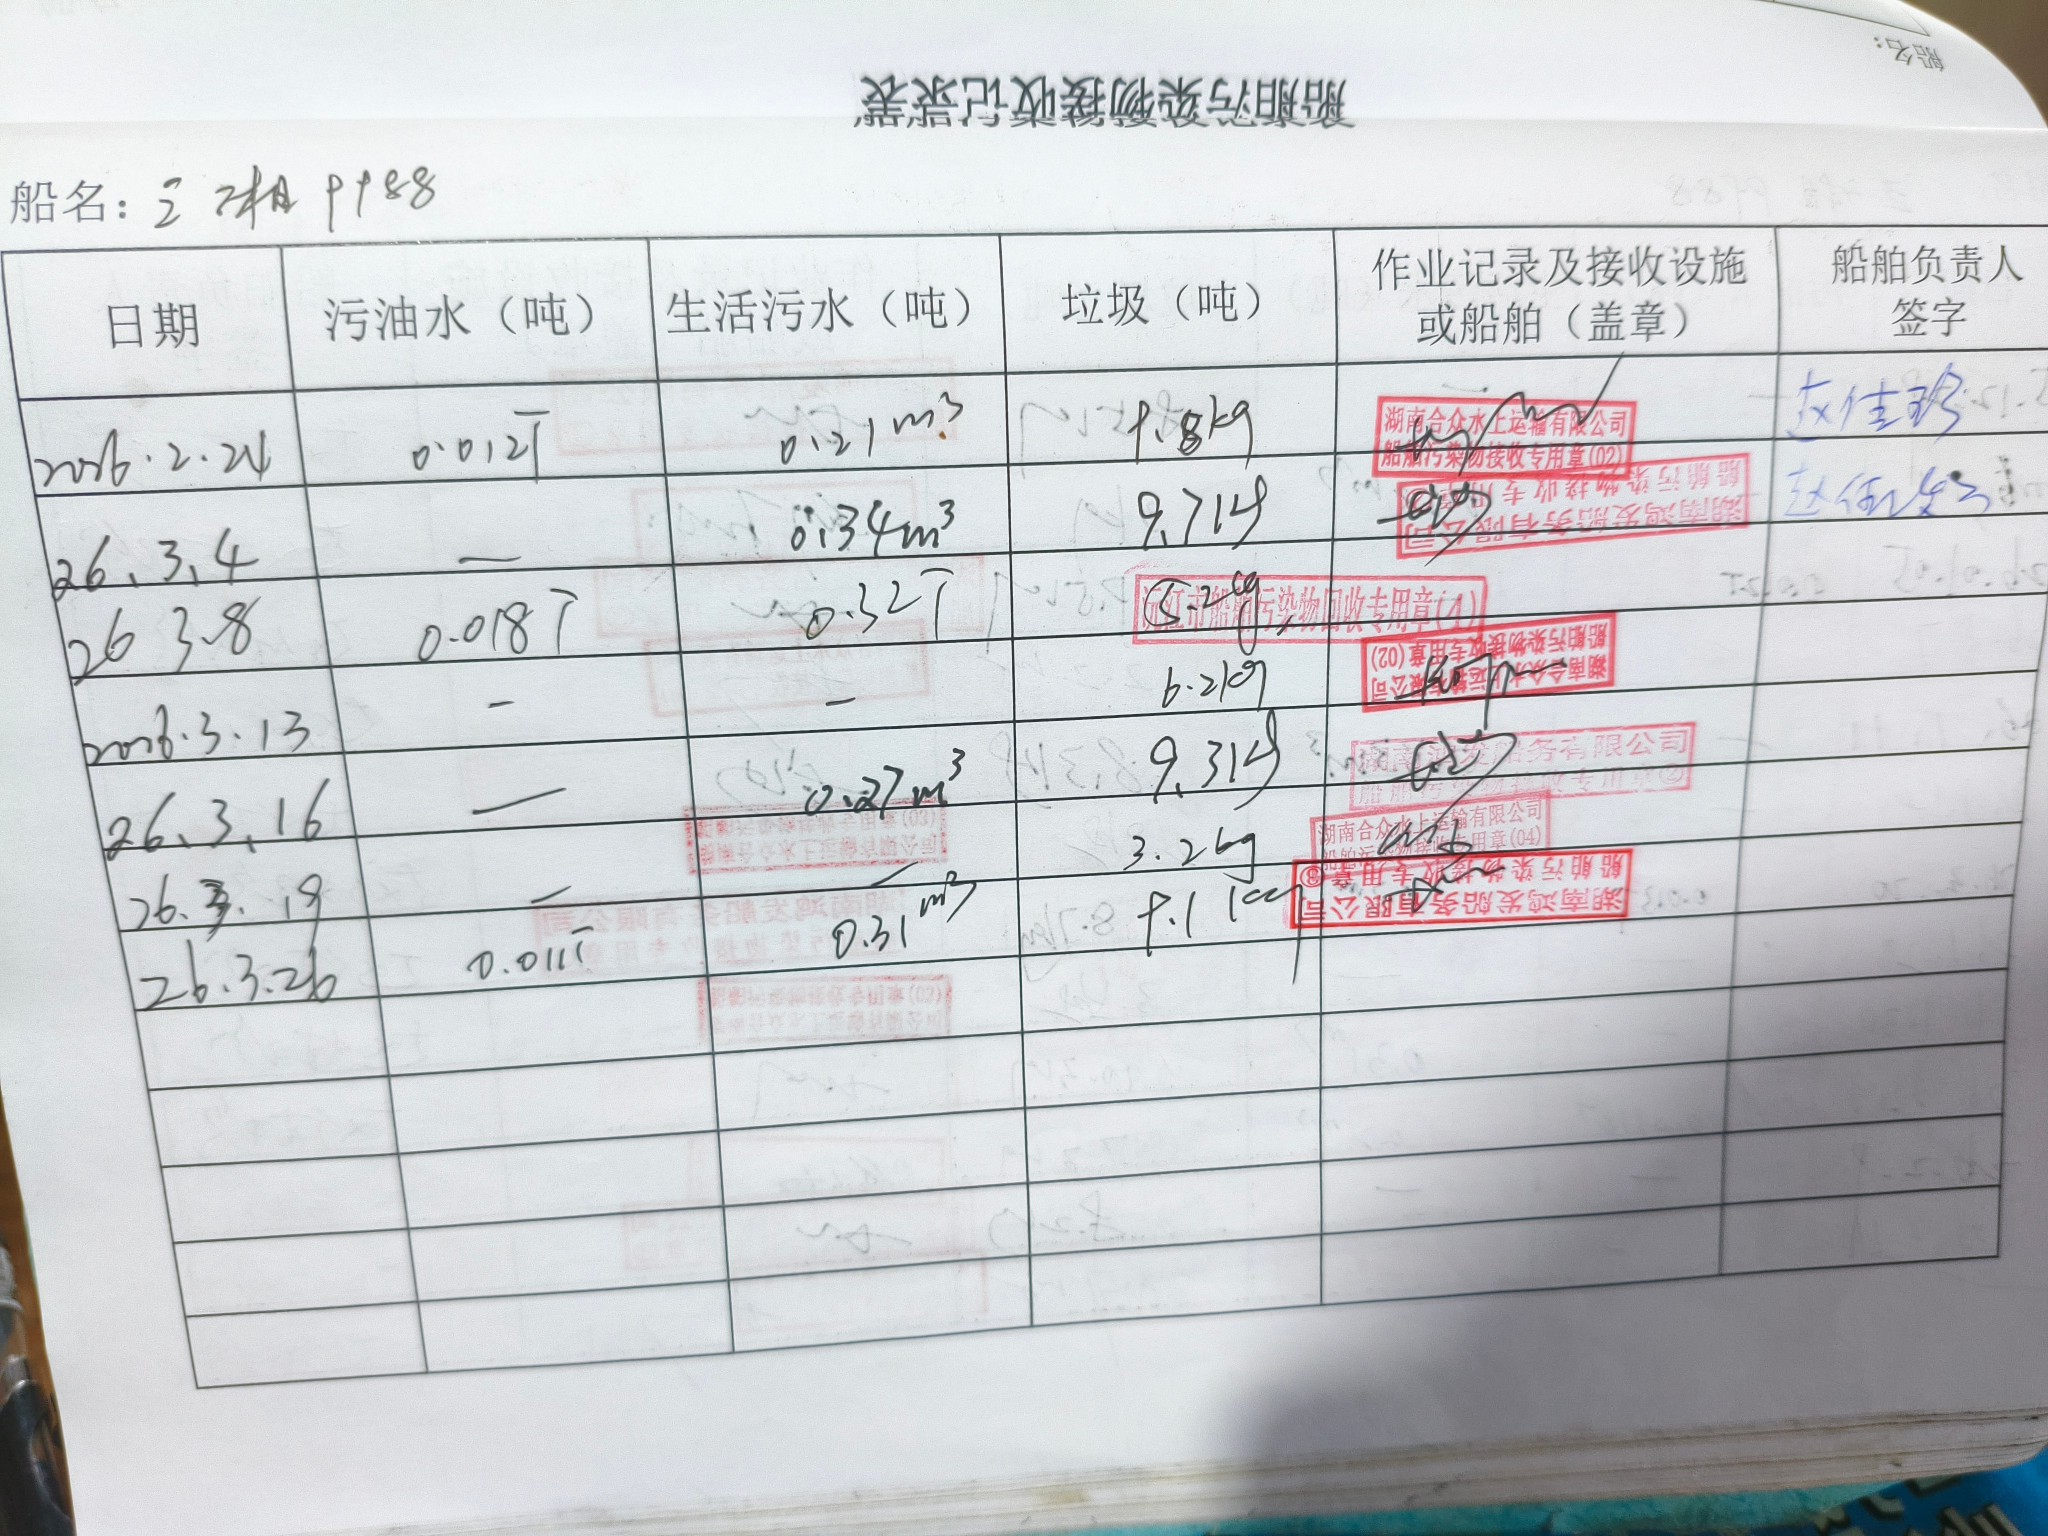 船名：
船舶污染物接收记录表
船名：三湘9988
日期 污油水（吨） 生活污水（吨） 垃圾（吨） 作业记录及接收设施或船舶（盖章） 船舶负责人签字
2026.2.24 0.012T 0.21m³ 9.8kg 湖南合众水上运输有限公司 船舶污染物接收专用章(02) 赵佳
26.3.4 — 0.34m³ 9.7kg 湖南鸿发船务有限公司 船舶污染物接收专用章 赵佳
26 3.8 0.018T 0.32T 5.2kg 沅江市船舶污染物回收专用章(1)
2026.3.13 — — 6.2kg 湖南合众水上运输有限公司 船舶污染物接收专用章(02)
26.3.16 — 0.27m³ 9.3kg 湖南鸿发船务有限公司 船舶污染物接收专用章②
26.3.19 — — 3.2kg 湖南合众水上运输有限公司 船舶污染物接收专用章(04)
26.3.26 0.011T 0.31m³ 9.1kg 湖南鸿发船务有限公司 船舶污染物接收专用章③